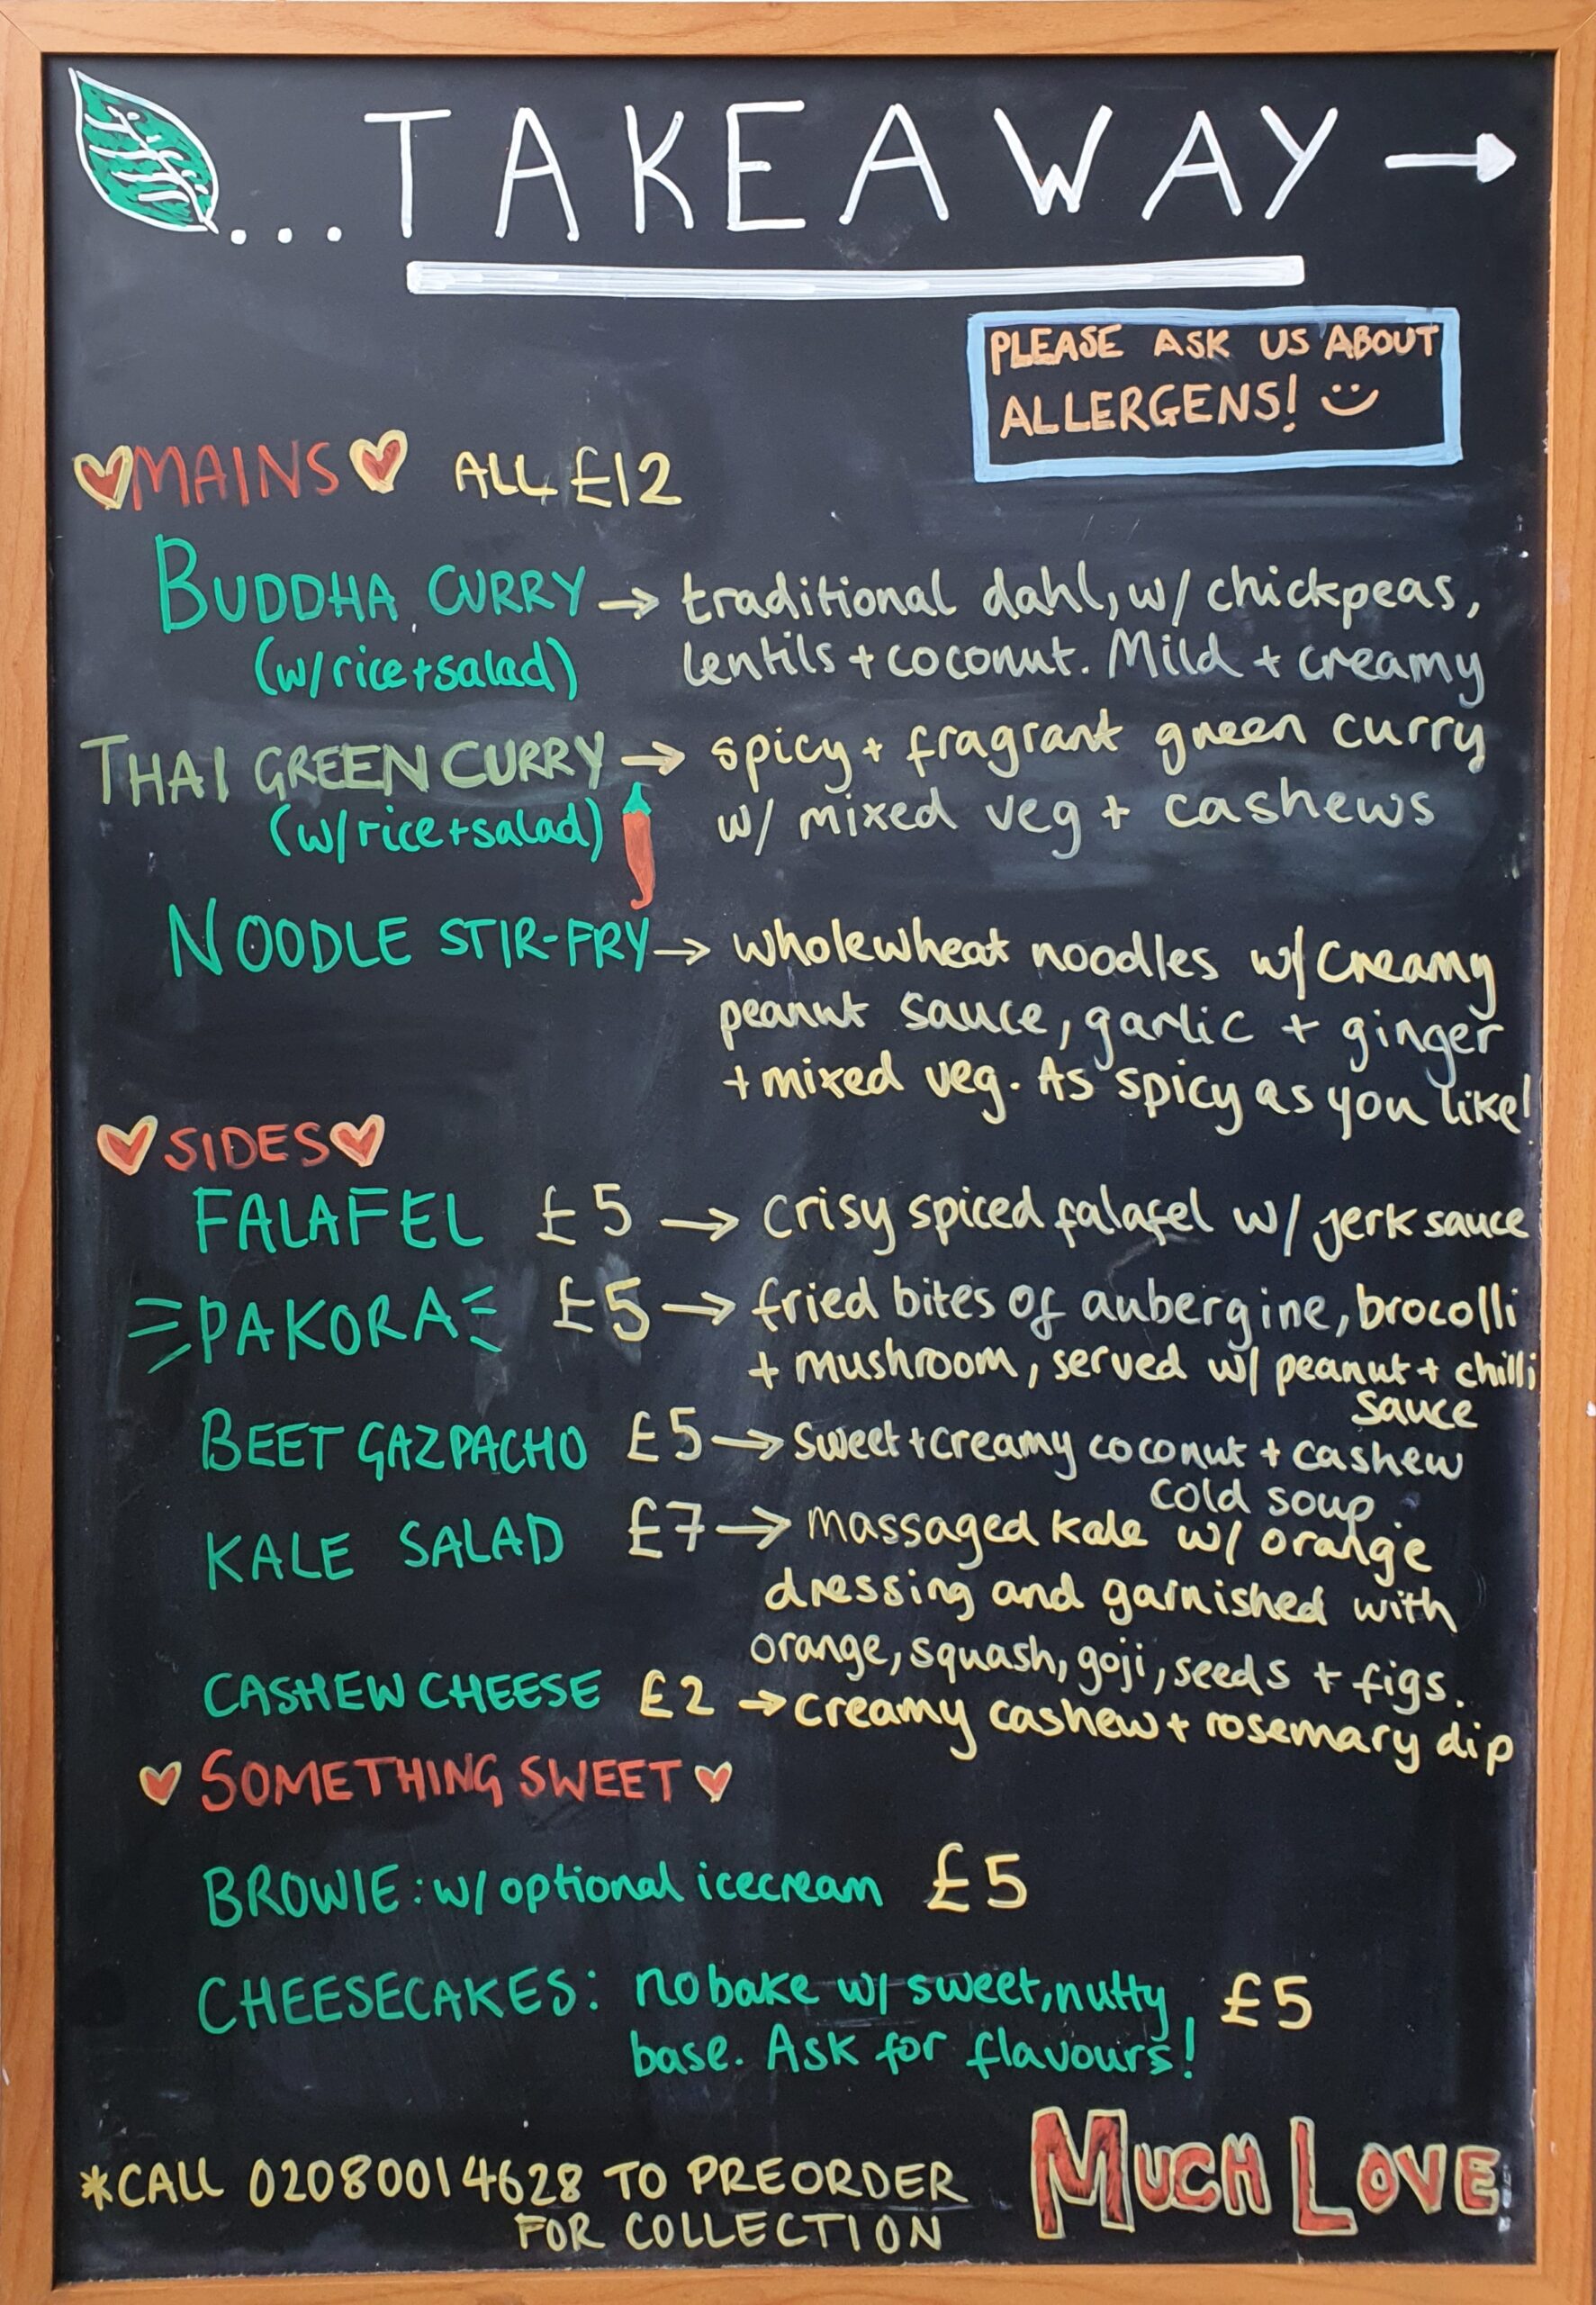 ...TAKEAWAY →
PLEASE ASK US ABOUT
ALLERGENS!
MAINS ALL £12
BUDDHA CURRY → traditional dahl, w/ chickpeas,
(w/rice+salad) lentils + coconut. Mild + creamy
THAI GREEN CURRY → spicy + fragrant green curry
(w/rice+salad) w/ mixed veg + cashews
NOODLE STIR-FRY → wholewheat noodles w/ creamy
peanut sauce, garlic + ginger
+ mixed veg. As spicy as you like!
SIDES
FALAFEL £5 → crisy spiced falafel w/ jerk sauce
PAKORA £5 → fried bites of aubergine, brocolli
+ mushroom, served w/ peanut + chilli
sauce
BEET GAZPACHO £5 → sweet + creamy coconut + cashew
cold soup.
KALE SALAD £7 → massaged kale w/ orange
dressing and garnished with
orange, squash, goji, seeds + figs.
CASHEW CHEESE £2 → creamy cashew + rosemary dip
SOMETHING SWEET
BROWIE: w/ optional icecream £5
CHEESECAKES: no bake w/ sweet, nutty £5
base. Ask for flavours!
*CALL 02080014628 TO PREORDER
FOR COLLECTION
MUCH LOVE!